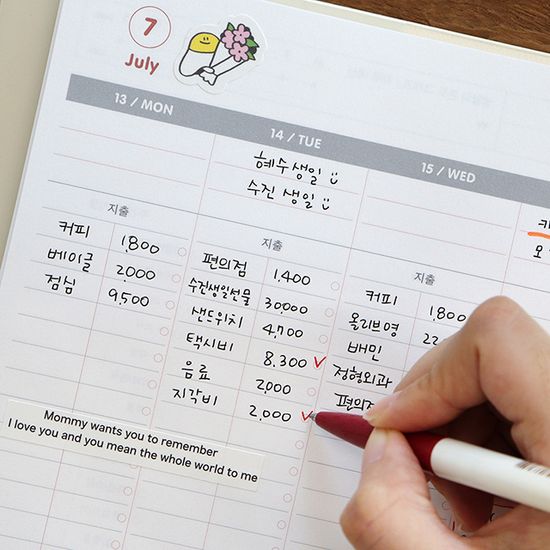 7
July
13 / MON
14 / TUE
혜수생일
수진 생일
15 / WED
지출
커피 1,800
베이글 2,000
점심 9,500
지출
편의점 1,400
수진생일선물 30,000
샌드위치 4,700
택시비 8,300
음료 2,000
지각비 2,000
지출
커피 1,800
올리브영
배민
정형외과
Mommy wants you to remember
I love you and you mean the whole world to me